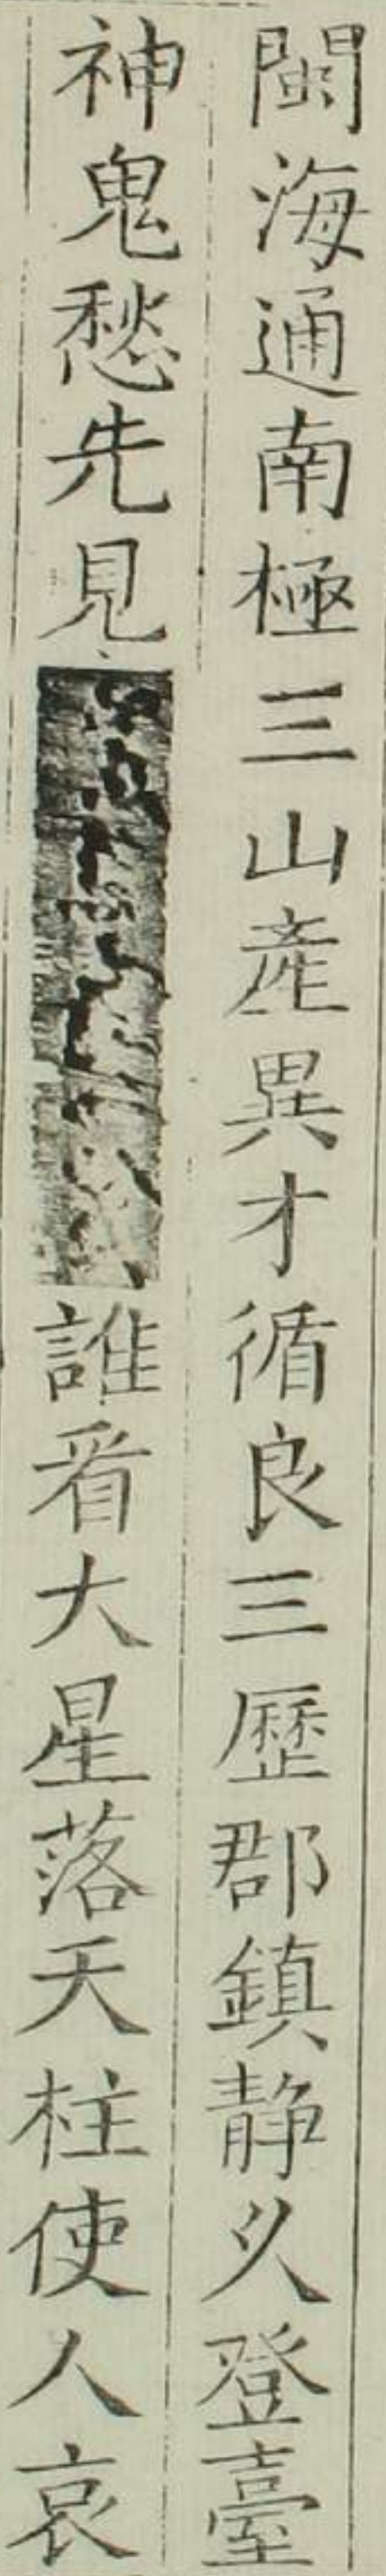 閩海通南極三山產異才循良三歷郡鎮静久登臺
神鬼愁先見誰看大星落天柱使人哀